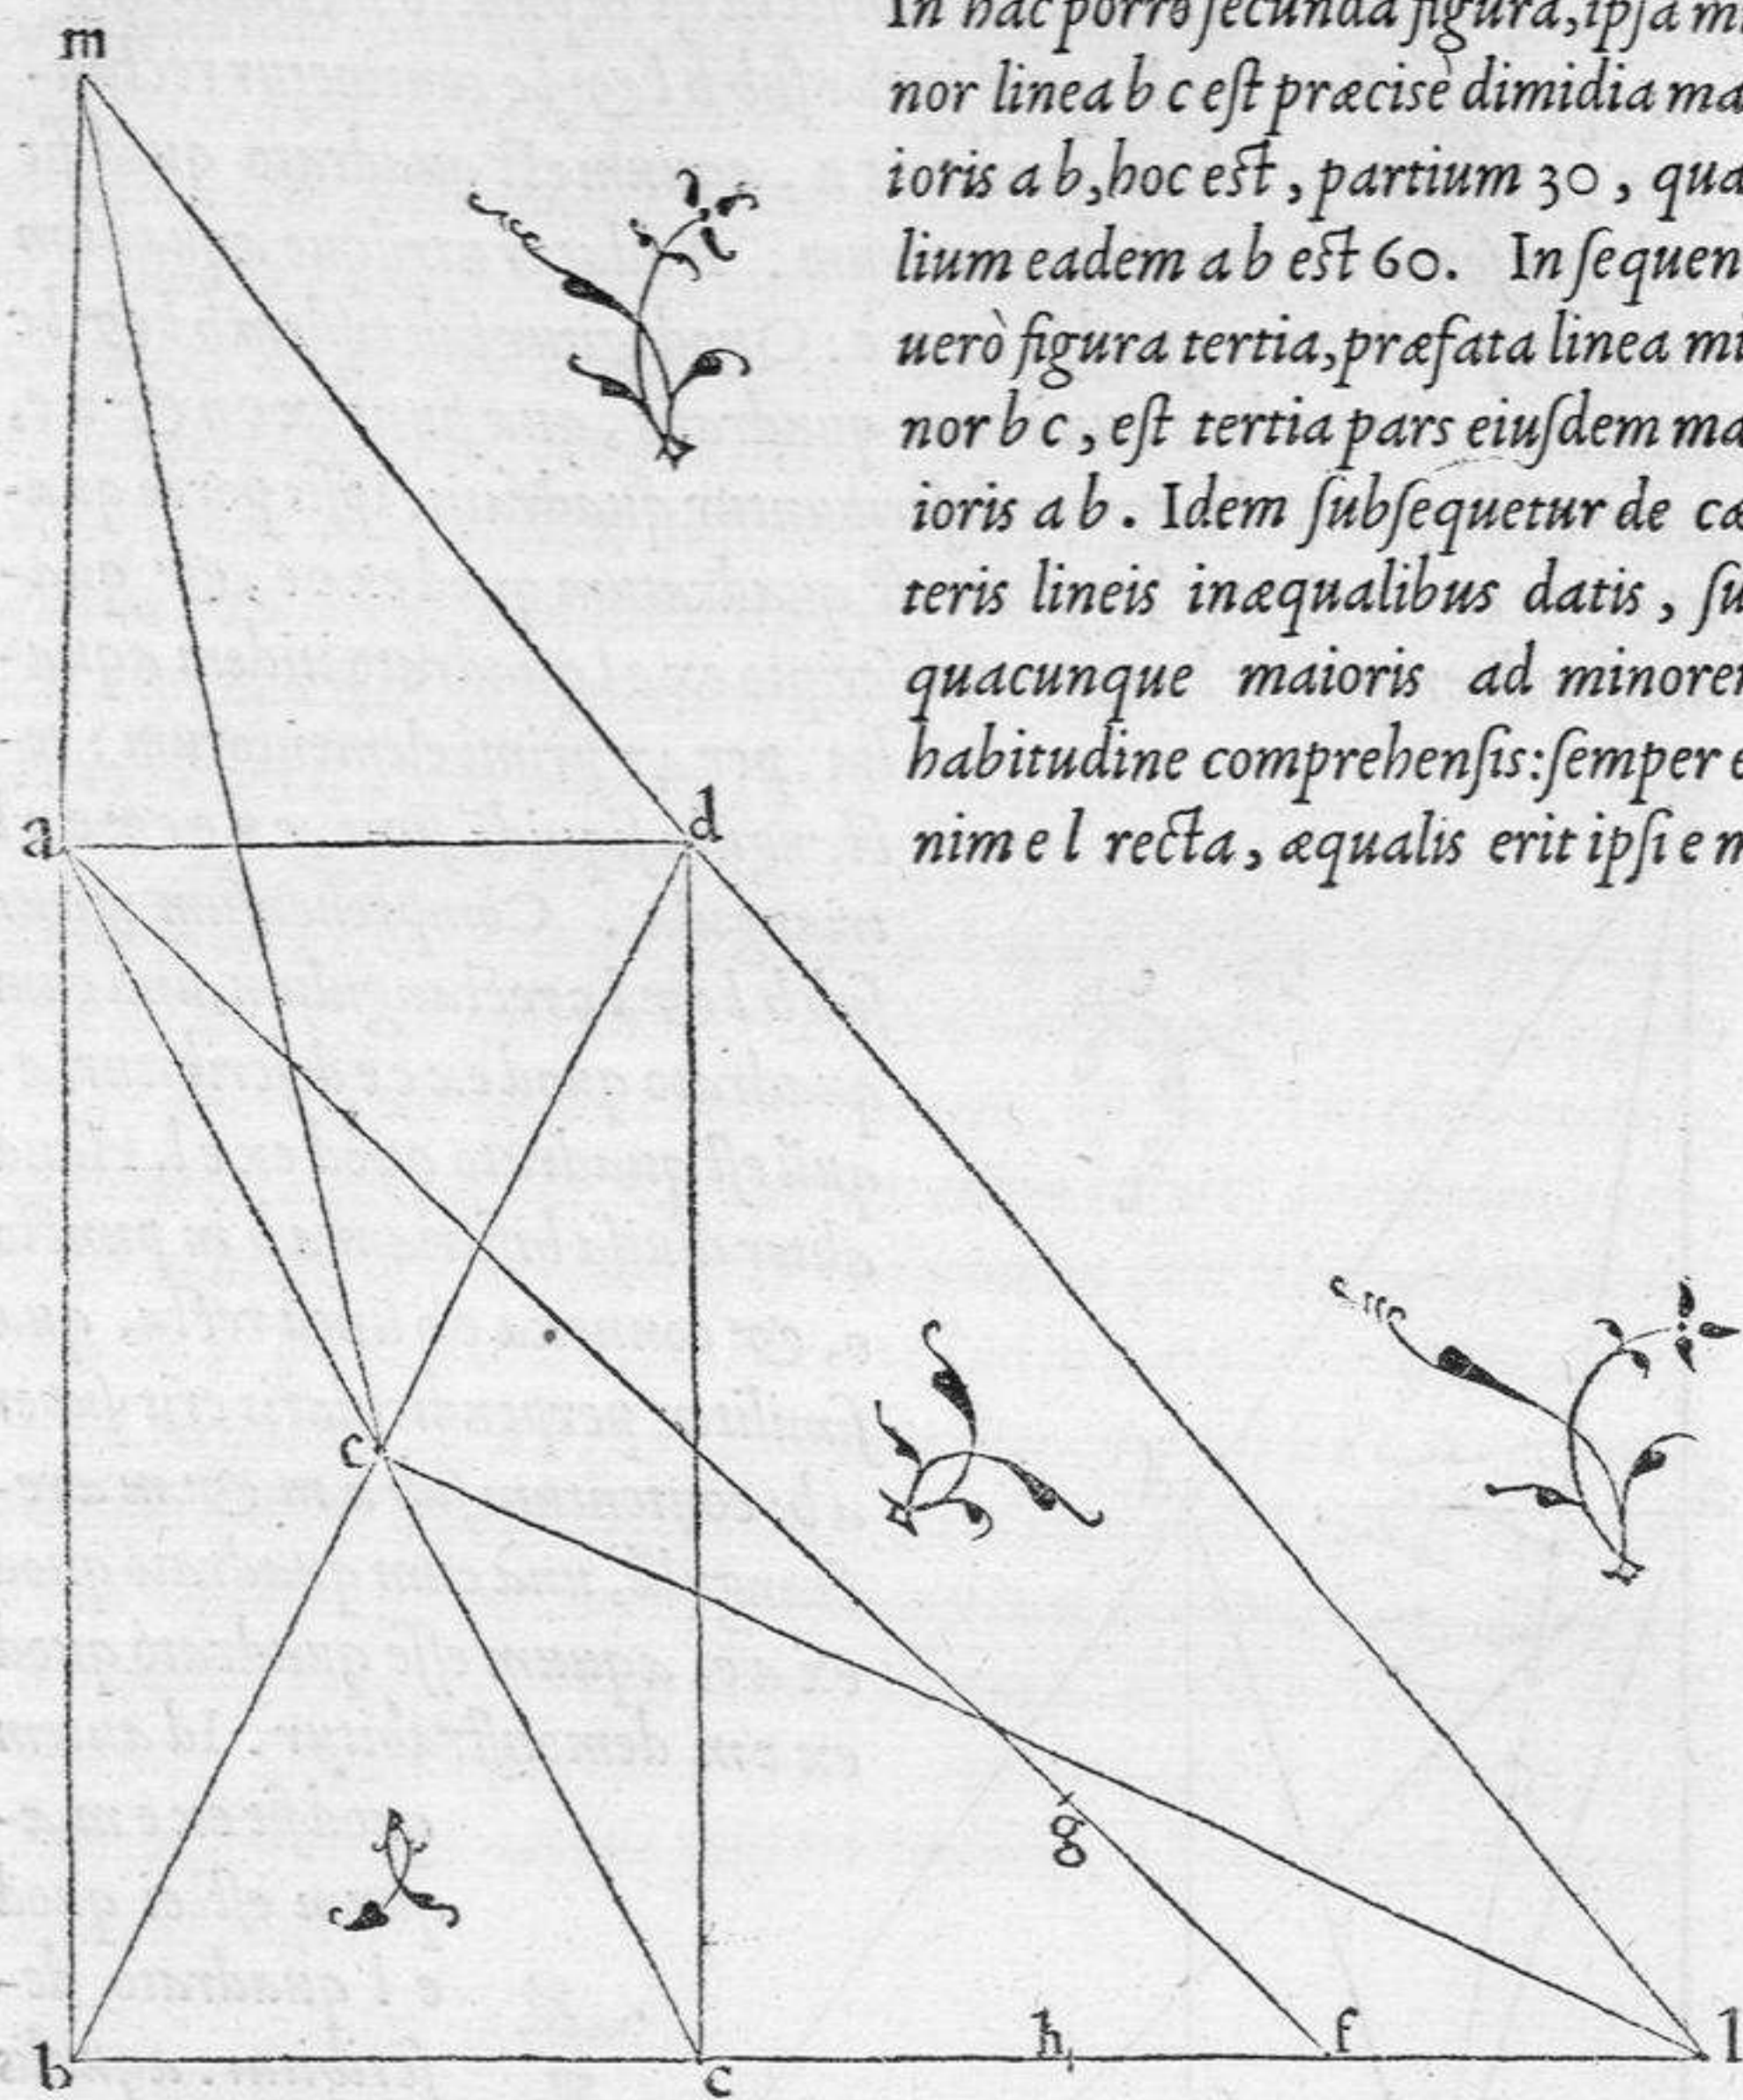 In hac porrò ſecunda figura, ipſa mi
nor linea b c eſt præcisè dimidia ma
ioris a b, hoc eſt, partium 30, qua
lium eadem a b eſt 60. In ſequen
uerò figura tertia, præfata linea mi
nor b c, eſt tertia pars eiuſdem ma
ioris a b. Idem ſubſequetur de cæ
teris lineis inæqualibus datis, ſu
quacunque maioris ad minorem
habitudine comprehenſis: ſemper e
nim e l recta, æqualis erit ipſi e m
m
a
d
c
g
b
c
h
f
l